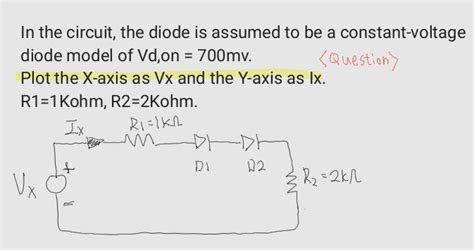 In the circuit, the diode is assumed to be a constant-voltage
diode model of Vd,on = 700mv.
<Question>
Plot the X-axis as Vx and the Y-axis as Ix.
R1=1Kohm, R2=2Kohm.
Ix
R1=1kΩ
D1
D2
R2=2kΩ
Vx
+
=